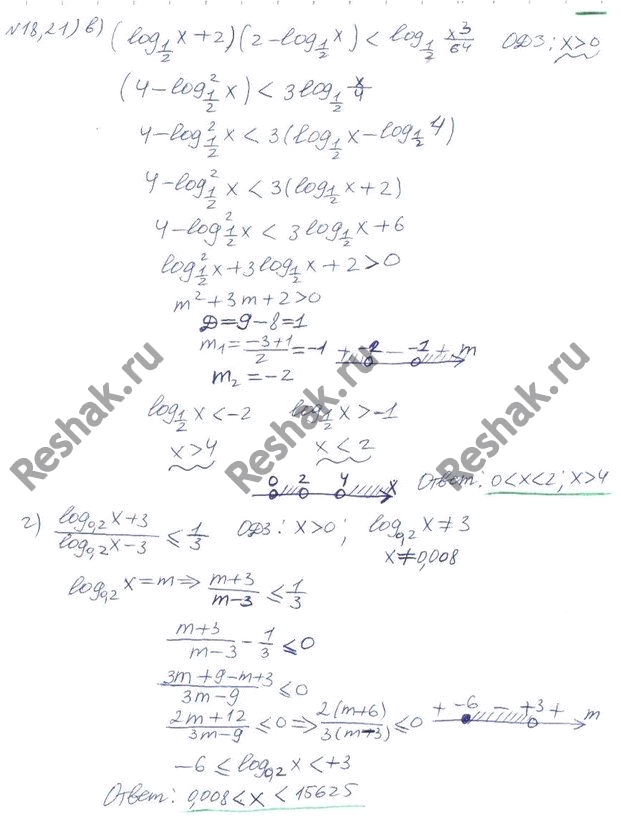 №18,21) в) (log_{1/2} x + 2)(2 - log_{1/2} x) < log_{1/2} x³/64 ОДЗ: x>0
(4 - log²_{1/2} x) < 3 log_{1/2} x/4
4 - log²_{1/2} x < 3(log_{1/2} x - log_{1/2} 4)
4 - log²_{1/2} x < 3(log_{1/2} x + 2)
4 - log²_{1/2} x < 3 log_{1/2} x + 6
log²_{1/2} x + 3 log_{1/2} x + 2 > 0
m² + 3m + 2 > 0
Д = 9 - 8 = 1
m₁ = (-3+1)/2 = -1 + -2 - -1 + m
m₂ = -2
log_{1/2} x < -2 log_{1/2} x > -1
x > 4 x < 2
0 2 4 x Ответ: 0<x<2; x>4
г) (log_{0,2} x + 3)/(log_{0,2} x - 3) ≤ 1/3 ОДЗ: x>0; log_{0,2} x ≠ 3
x ≠ 0,008
log_{0,2} x = m ⇒ (m+3)/(m-3) ≤ 1/3
(m+3)/(m-3) - 1/3 ≤ 0
(3m+9-m+3)/(3m-9) ≤ 0
(2m+12)/(3m-9) ≤ 0 ⇒ 2(m+6)/3(m-3) ≤ 0 + -6 - +3 + m
-6 ≤ log_{0,2} x < +3
Ответ: 0,008 < x < 15625
Reshak.ru
Reshak.ru
Reshak.ru